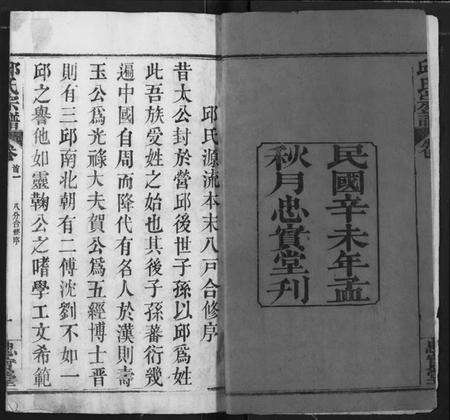 邱氏宗譜
卷
民國辛未年孟
秋月忠實堂刊
邱氏源流本末八戸合修序
昔太公封於營邱後世子孫以邱爲姓
此吾族受姓之始也其後子孫蕃衍幾
遍中國自周而降代有名人於漢則壽
玉公爲光祿大夫賀公爲五經博士晋
則有三邱南北朝有二傅沈劉不如一
邱之譽他如靈鞠公之嗜學工文希範
邱氏宗譜
卷
首一
八分合修序
一
忠實堂